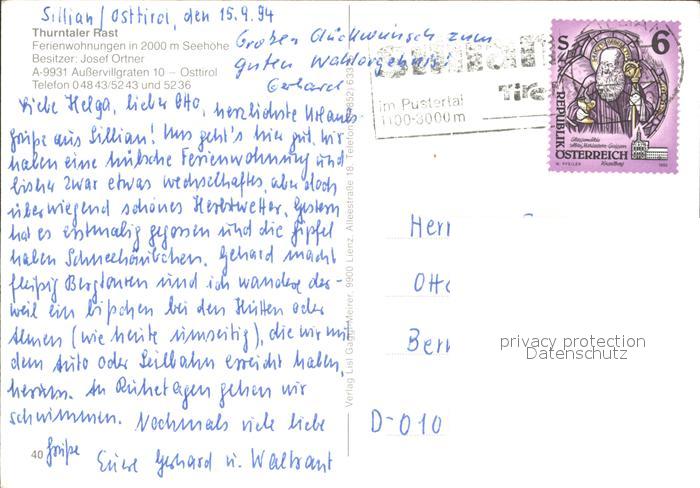 Sillian/Osttirol, den 15.9.94
Thurntaler Rast
Ferienwohnungen in 2000 m Seehöhe
Besitzer: Josef Ortner
A-9931 Außervillgraten 10 – Osttirol
Telefon 04843/5243 und 5236
Großen Glückwunsch zum
guten Wahlergebnis!
Gerhard
Liebe Helga, lieber Otto, herzlichste Urlaubs-
grüße aus Sillian! Uns geht's hier gut, wir
haben eine hübsche Ferienwohnung und
bisher zwar etwas wechselhaftes, aber doch
überwiegend schönes Herbstwetter. Gestern
hat es erstmalig gegossen und die Gipfel
haben Schneehäubchen. Gerhard macht
fleißig Bergtouren und ich wandere der-
weil ein bißchen bei den Hütten oder
Almen (wie heute umseitig), die wir mit
dem Auto oder Seilbahn erreicht haben,
herum. An Ruhetagen gehen wir
schwimmen. Nochmals viele liebe
Grüße
Eure Gerhard u. Waltraut
40
Verlag Lisl Gaggl-Meirer, 9900 Lienz, Alleestraße 18, Telefon
im Pustertal
1100-3000m
Tirol
S 6
REPUBLIK
ÖSTERREICH
Herr
Otto
Bern
D-010
privacy protection
Datenschutz